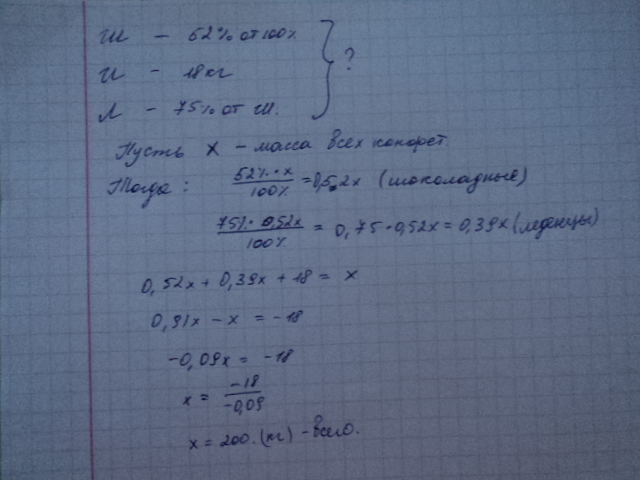 Ш - 52% от 100%
И - 18 кг
Л - 75% от Ш.
} ?
Пусть х - масса всех конфет.
Тогда: 52%·х/100% = 0,52х (шоколадные)
75%·0,52х/100% = 0,75·0,52х = 0,39х (леденцы)
0,52х + 0,39х + 18 = х
0,91х - х = -18
-0,09х = -18
х = -18/-0,09
х = 200. (кг) - всего.